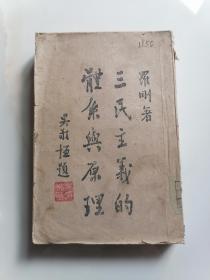 羅剛著
三民主義的
體系與原理
吳敬恆題
1156